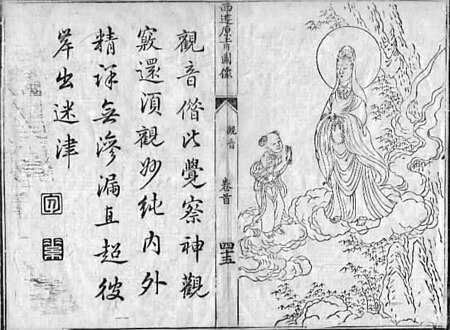 西遊原旨圖像
觀音
卷首
觀音偕此覺察神觀
竅還須觀妙純內外
精詳無滲漏直超彼
岸出迷津